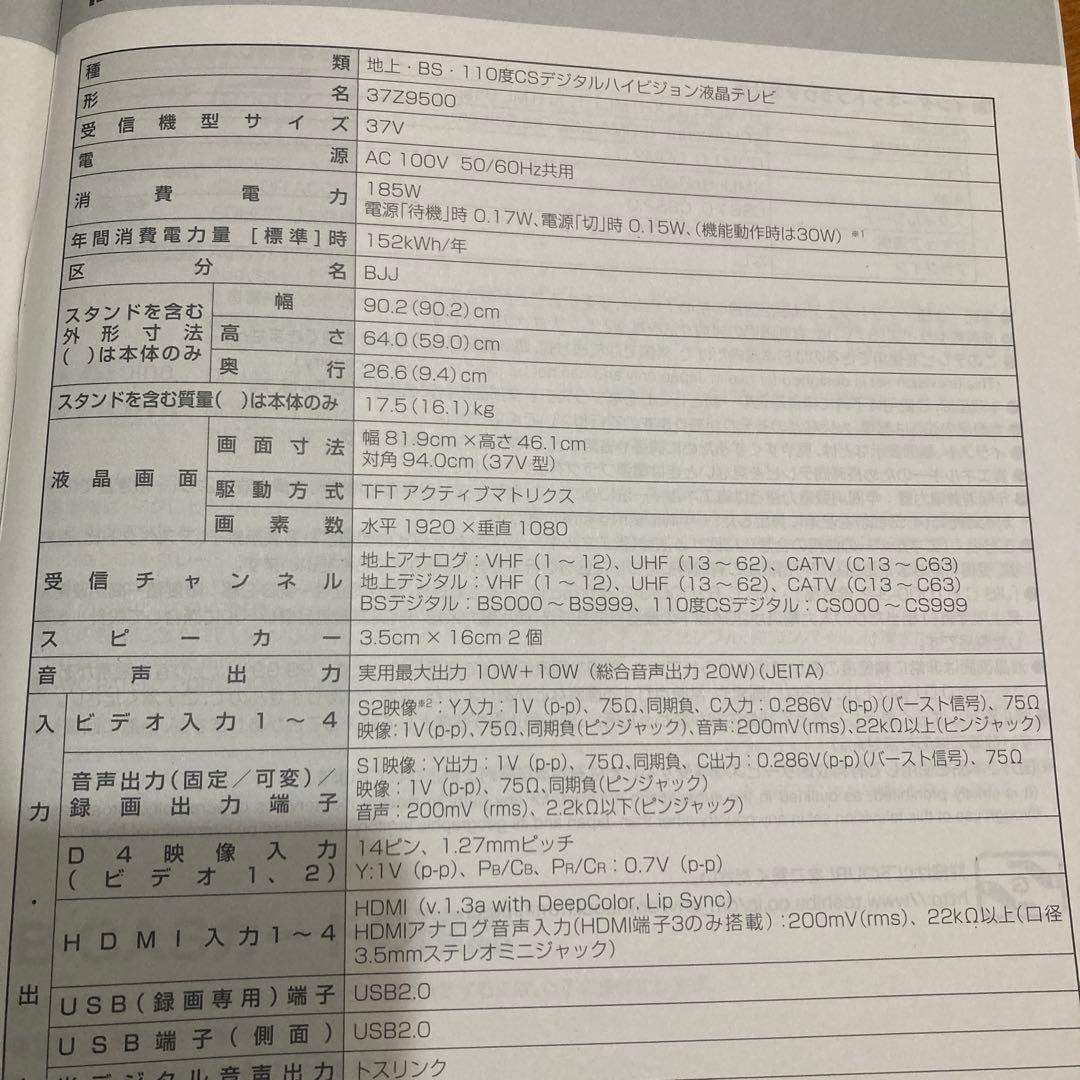 種類 地上・BS・110度CSデジタルハイビジョン液晶テレビ
形名 37Z9500
受信機型サイズ 37V
電源 AC 100V 50/60Hz共用
消費電力 185W
電源「待機」時 0.17W、電源「切」時 0.15W、(機能動作時は30W) ※1
年間消費電力量 [標準]時 152kWh/年
区分名 BJJ
スタンドを含む
外形寸法
( )は本体のみ
幅 90.2(90.2)cm
高さ 64.0(59.0)cm
奥行 26.6(9.4)cm
スタンドを含む質量( )は本体のみ 17.5(16.1)kg
液晶画面
画面寸法 幅 81.9cm×高さ 46.1cm
対角 94.0cm (37V型)
駆動方式 TFTアクティブマトリクス
画素数 水平 1920×垂直 1080
受信チャンネル 地上アナログ:VHF (1~12)、UHF (13~62)、CATV (C13~C63)
地上デジタル:VHF (1~12)、UHF (13~62)、CATV (C13~C63)
BSデジタル:BS000~BS999、110度CSデジタル:CS000~CS999
スピーカー 3.5cm×16cm 2個
音声出力 実用最大出力 10W+10W (総合音声出力 20W)(JEITA)
入力・出
ビデオ入力1~4 S2映像※2:Y入力:1V (p-p)、75Ω、同期負、C入力:0.286V (p-p)(バースト信号)、75Ω
映像:1V(p-p)、75Ω、同期負(ピンジャック)、音声:200mV(rms)、22kΩ以上(ピンジャック)
音声出力(固定/可変)/
録画出力端子
S1映像:Y出力:1V (p-p)、75Ω、同期負、C出力:0.286V(p-p)(バースト信号)、75Ω
映像:1V (p-p)、75Ω、同期負(ピンジャック)
音声:200mV (rms)、2.2kΩ以下(ピンジャック)
D4映像入力
(ビデオ1、2)
14ピン、1.27mmピッチ
Y:1V (p-p)、PB/CB、PR/CR:0.7V (p-p)
HDMI入力1~4
HDMI (v.1.3a with DeepColor, Lip Sync)
HDMIアナログ音声入力(HDMI端子3のみ搭載):200mV(rms)、22kΩ以上(口径
3.5mmステレオミニジャック)
USB(録画専用)端子 USB2.0
USB端子(側面) USB2.0
デジタル音声出力 トスリンク